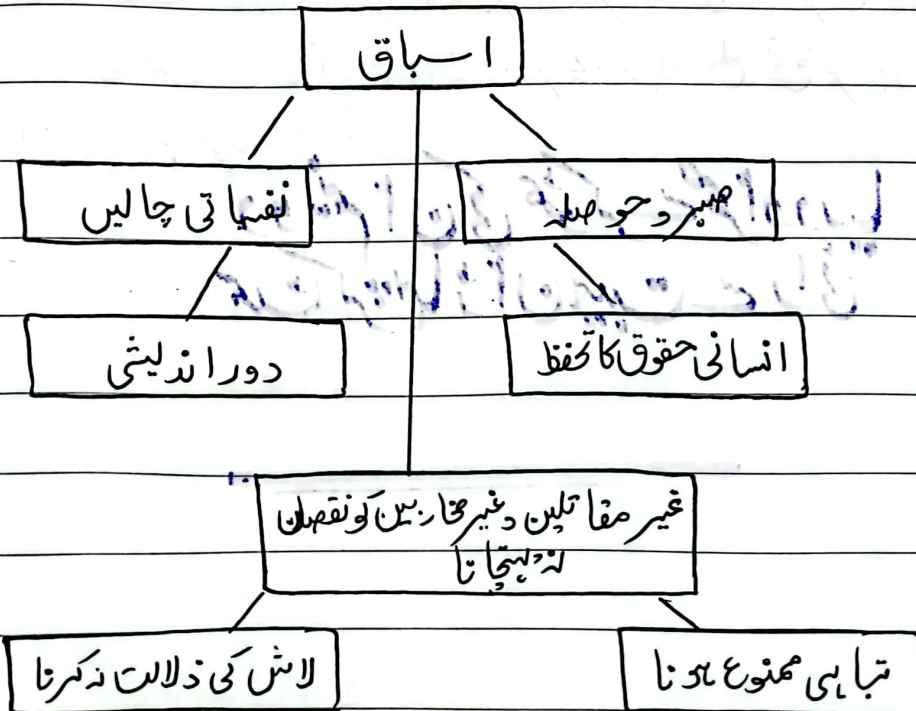 اسباق
صبر و حوصلہ
نفسیاتی چالیں
انسانی حقوق کا تحفظ
دور اندیشی
غیر مقاتلین و غیر محاربین کو نقصان
نہ پہنچانا
تباہی ممنوع ہونا
لاش کی ذلالت نہ کرنا